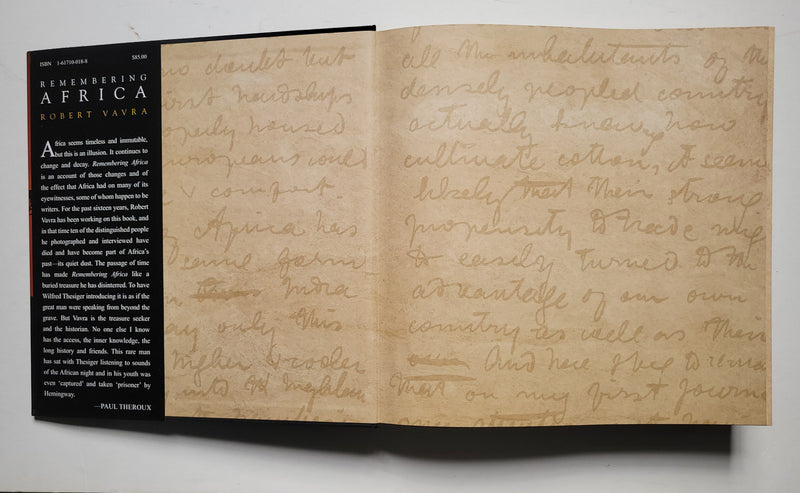 ISBN 1-61710-018-8 $85.00
REMEMBERING
AFRICA
ROBERT VAVRA
Africa seems timeless and immutable,
but this is an illusion. It continues to
change and decay. Remembering Africa
is an account of those changes and of
the effect that Africa had on many of its
eyewitnesses, some of whom happen to be
writers. For the past sixteen years, Robert
Vavra has been working on this book, and
in that time ten of the distinguished people
he photographed and interviewed have
died and have become part of Africa's
past—its quiet dust. The passage of time
has made Remembering Africa like a
buried treasure he has disinterred. To have
Wilfred Thesiger introducing it is as if the
great man were speaking from beyond the
grave. But Vavra is the treasure seeker
and the historian. No one else I know
has the access, the inner knowledge, the
long history and friends. This rare man
has sat with Thesiger listening to sounds
of the African night and in his youth was
even 'captured' and taken 'prisoner' by
Hemingway.
—PAUL THEROUX
no doubt but
hardships
housed
comfort
Africa has
India
only this
higher
into
all the inhabitants of the
densely peopled country
actually know how
cultivate cotton, it seems
likely that their strong
propensity to trade may
be easily turned to the
advantage of our own
country as well as their
own And here I beg to
that on my first journ